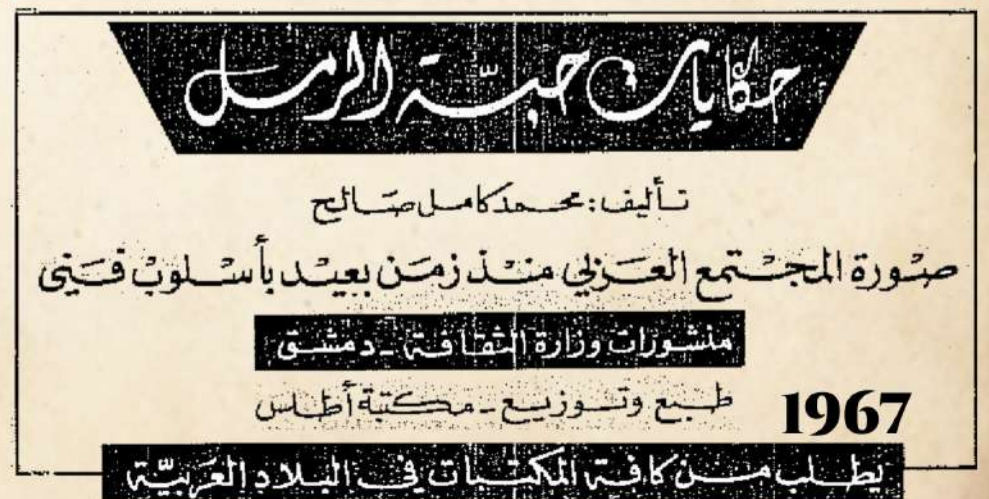 حكايات حبّة الرمل
تأليف: محمد كامل صالح
صورة المجتمع العربي منذ زمن بعيد بأسلوب فني
منشورات وزارة الثقافة - دمشق
طبع وتوزيع - مكتبة أطلس
1967
يطلب من كافة المكتبات في البلاد العربيّة